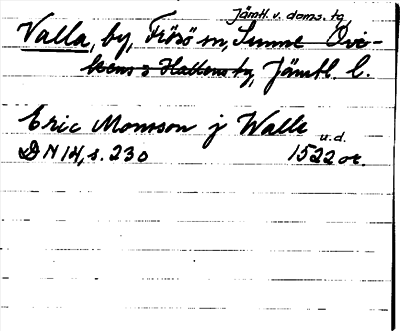 Jämtl. v. doms. tg
Valla, by, Frösö sn, Sunne Ovi-
kens o Hallens tg, Jämtl. l.
Eric Monsson j Walle
u.d.
DN 14, s. 230 1522 or.